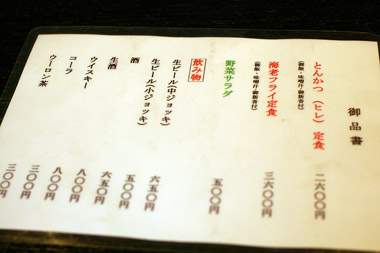 御品書
とんかつ（ヒレ）定食 二六〇〇円
（御飯・味噌汁・御新香付）
海老フライ定食 三六〇〇円
（御飯・味噌汁・御新香付）
野菜サラダ 五〇〇円
飲み物
生ビール(中ジョッキ) 六五〇円
生ビール(小ジョッキ) 五〇〇円
酒 六五〇円
生酒 八〇〇円
ウイスキー 八〇〇円
コーラ 三〇〇円
ウーロン茶 三〇〇円